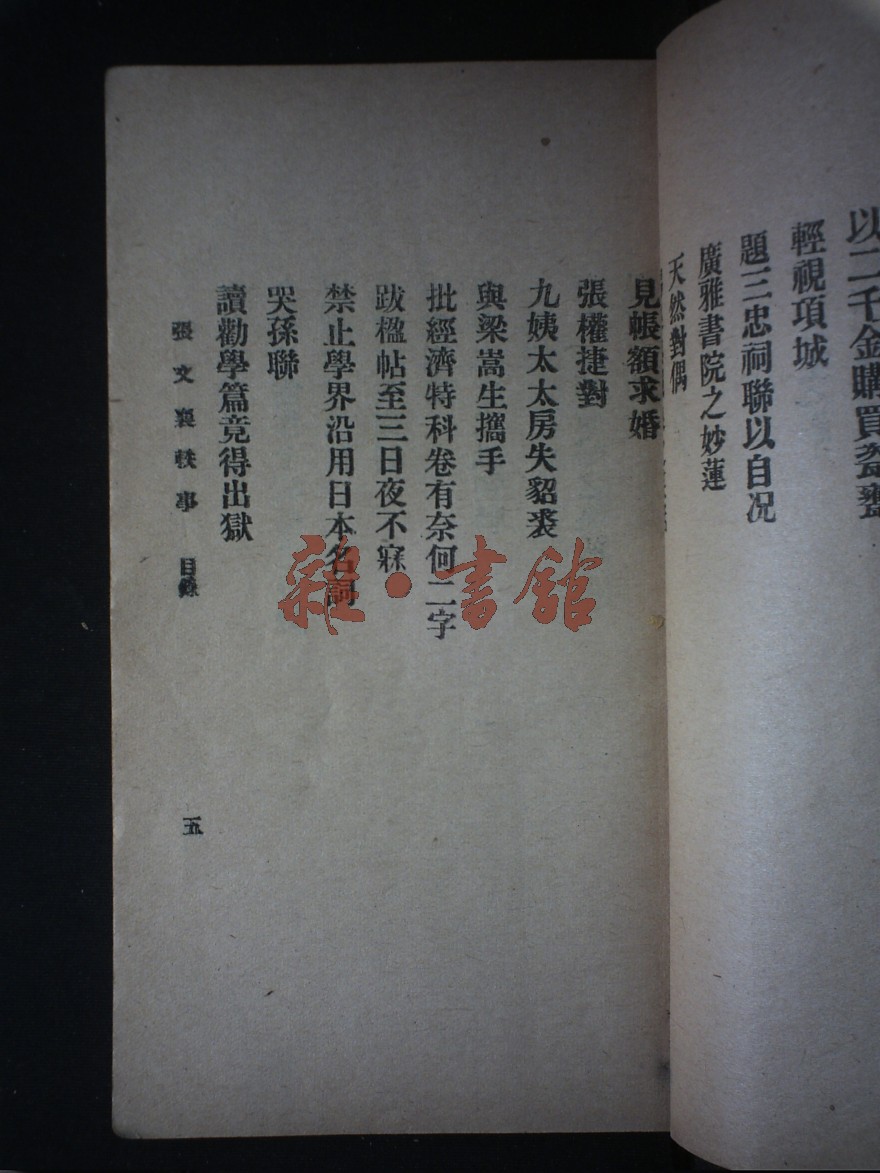 以二千金購買瓮甕
輕視項城
題三忠祠聯以自况
廣雅書院之妙蓮
天然對偶
見帳額求婚
張權捷對
九姨太太房失貂裘
與梁嵩生攜手
批經濟特科卷有奈何二字
跋楹帖至三日夜不寐
禁止學界沿用日本名詞
哭孫聯
讀勸學篇竟得出獄
張文襄軼事 目錄
五
雜·書館